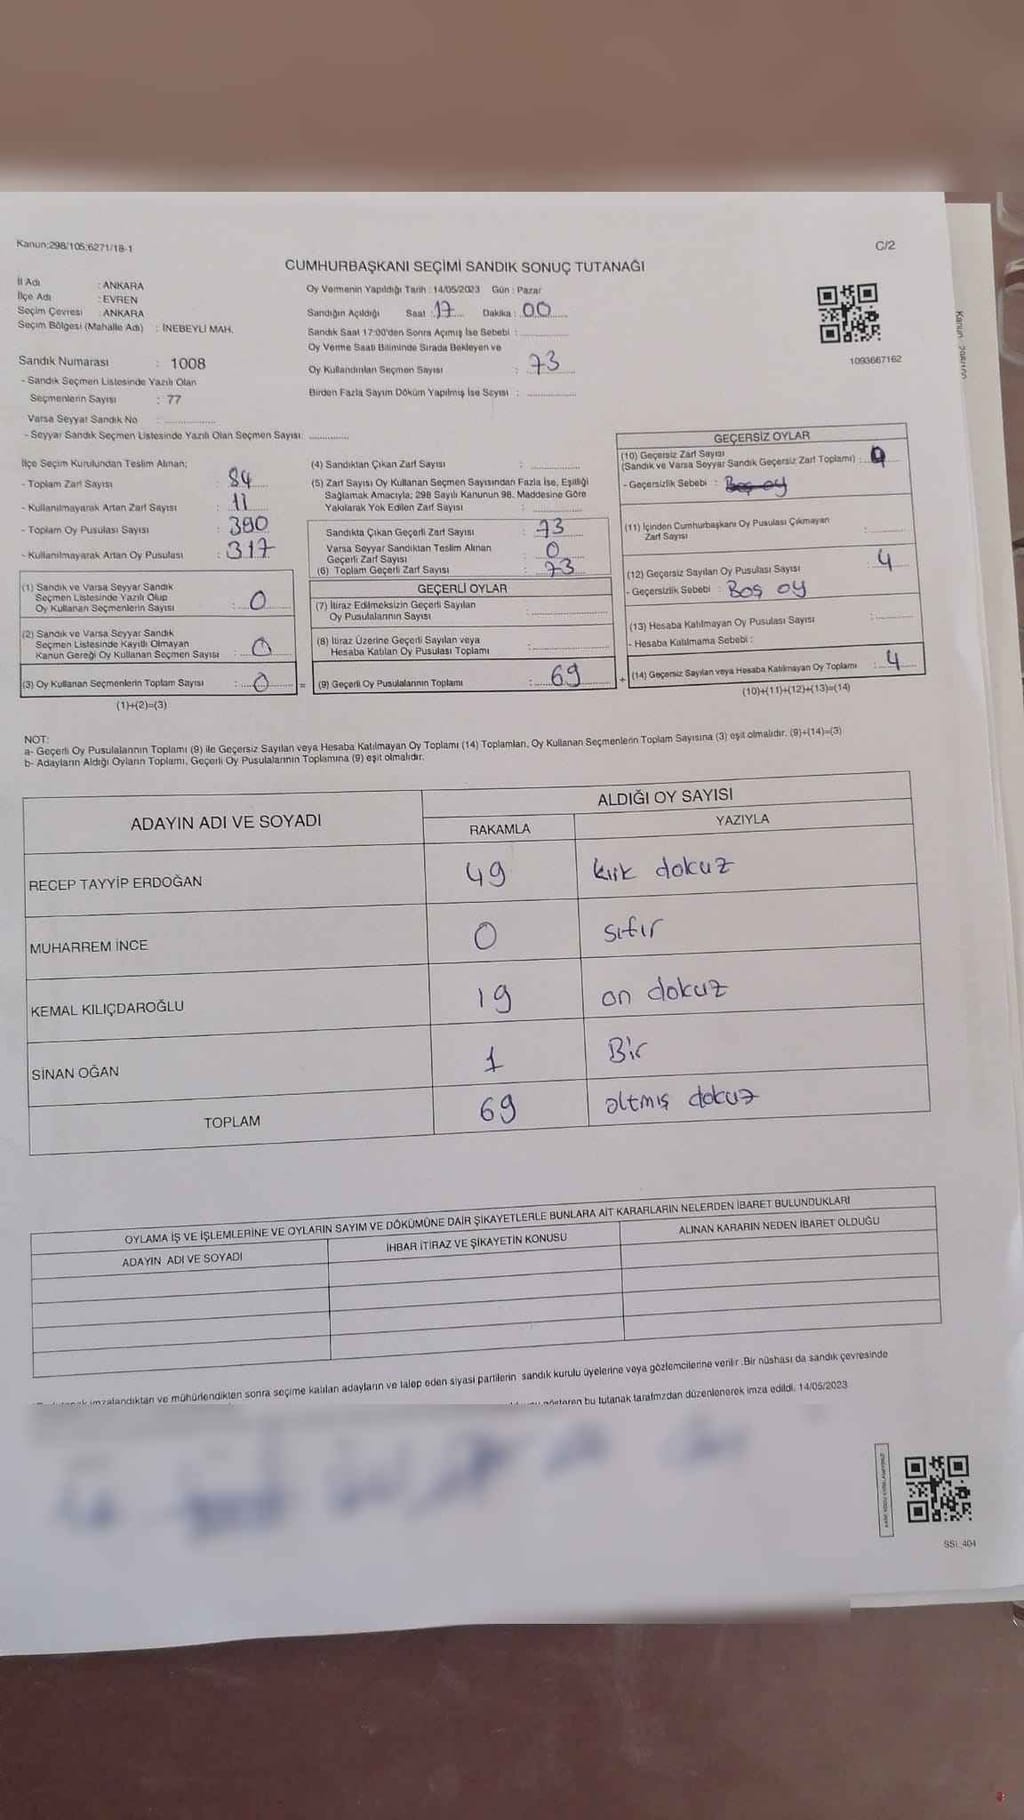 Kanun;298/105;6271/18-1
C/2
CUMHURBAŞKANI SEÇİMİ SANDIK SONUÇ TUTANAĞI
İl Adı : ANKARA
İlçe Adı : EVREN
Seçim Çevresi : ANKARA
Seçim Bölgesi (Mahalle Adı) : İNEBEYLİ MAH.
Sandık Numarası : 1008
- Sandık Seçmen Listesinde Yazılı Olan
Seçmenlerin Sayısı : 77
Varsa Seyyar Sandık No : ..............
- Seyyar Sandık Seçmen Listesinde Yazılı Olan Seçmen Sayısı: ............
Oy Vermenin Yapıldığı Tarih : 14/05/2023 Gün : Pazar
Sandığın Açıldığı Saat : 17 Dakika : 00
Sandık Saat 17:00'den Sonra Açımış İse Sebebi : ..............
Oy Verme Saati Bitiminde Sırada Bekleyen ve
Oy Kullandırılan Seçmen Sayısı : 73
Birden Fazla Sayım Döküm Yapılmış İse Sayısı : ..............
1093667162
İlçe Seçim Kurulundan Teslim Alınan;
- Toplam Zarf Sayısı : 84
- Kullanılmayarak Artan Zarf Sayısı : 11
- Toplam Oy Pusulası Sayısı : 390
- Kullanılmayarak Artan Oy Pusulası : 317
(1) Sandık ve Varsa Seyyar Sandık
Seçmen Listesinde Yazılı Olup
Oy Kullanan Seçmenlerin Sayısı : 0
(2) Sandık ve Varsa Seyyar Sandık
Seçmen Listesinde Kayıtlı Olmayan
Kanun Gereği Oy Kullanan Seçmen Sayısı : 0
(3) Oy Kullanan Seçmenlerin Toplam Sayısı : 0 =
(1)+(2)=(3)
(4) Sandıktan Çıkan Zarf Sayısı : ..............
(5) Zarf Sayısı Oy Kullanan Seçmen Sayısından Fazla İse, Eşitliği
Sağlamak Amacıyla; 298 Sayılı Kanunun 98. Maddesine Göre
Yakılarak Yok Edilen Zarf Sayısı : ..............
Sandıkta Çıkan Geçerli Zarf Sayısı : 73
Varsa Seyyar Sandıktan Teslim Alınan
Geçerli Zarf Sayısı : 0
(6) Toplam Geçerli Zarf Sayısı : 73
GEÇERLİ OYLAR
(7) İtiraz Edilmeksizin Geçerli Sayılan
Oy Pusulalarının Sayısı : ..............
(8) İtiraz Üzerine Geçerli Sayılan veya
Hesaba Katılan Oy Pusulası Toplamı : ..............
(9) Geçerli Oy Pusulalarının Toplamı : 69 +
GEÇERSİZ OYLAR
(10) Geçersiz Zarf Sayısı
(Sandık ve Varsa Seyyar Sandık Geçersiz Zarf Toplamı) : 0
- Geçersizlik Sebebi : Boş oy
(11) İçinden Cumhurbaşkanı Oy Pusulası Çıkmayan
Zarf Sayısı : ..............
(12) Geçersiz Sayılan Oy Pusulası Sayısı : 4
- Geçersizlik Sebebi : Boş oy
(13) Hesaba Katılmayan Oy Pusulası Sayısı : ..............
- Hesaba Katılmama Sebebi :
(14) Geçersiz Sayılan veya Hesaba Katılmayan Oy Toplamı : 4
(10)+(11)+(12)+(13)=(14)
NOT:
a- Geçerli Oy Pusulalarının Toplamı (9) ile Geçersiz Sayılan veya Hesaba Katılmayan Oy Toplamı (14) Toplamları, Oy Kullanan Seçmenlerin Toplam Sayısına (3) eşit olmalıdır. (9)+(14)=(3)
b- Adayların Aldığı Oyların Toplamı, Geçerli Oy Pusulalarının Toplamına (9) eşit olmalıdır.
ADAYIN ADI VE SOYADI
ALDIĞI OY SAYISI
RAKAMLA YAZIYLA
RECEP TAYYİP ERDOĞAN 49 kırk dokuz
MUHARREM İNCE 0 sıfır
KEMAL KILIÇDAROĞLU 19 on dokuz
SİNAN OĞAN 1 Bir
TOPLAM 69 altmış dokuz
OYLAMA İŞ VE İŞLEMLERİNE VE OYLARIN SAYIM VE DÖKÜMÜNE DAİR ŞİKAYETLERLE BUNLARA AİT KARARLARIN NELERDEN İBARET BULUNDUKLARI
ADAYIN ADI VE SOYADI
İHBAR İTİRAZ VE ŞİKAYETİN KONUSU
ALINAN KARARIN NEDEN İBARET OLDUĞU
imzalandıktan ve mühürlendikten sonra seçime katılan adayların ve talep eden siyasi partilerin sandık kurulu üyelerine veya gözlemcilerine verilir .Bir nüshası da sandık çevresinde
gösteren bu tutanak tarafımızdan düzenlenerek imza edildi. 14/05/2023
SSİ_404